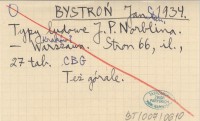 BYSTROŃ Jan S. 1934.
Typy ludowe J. P. Norblina.
Kraków
– Warszawa. Stron 66, il.,
27 tab. CBG
Też górale.
BT/00710010